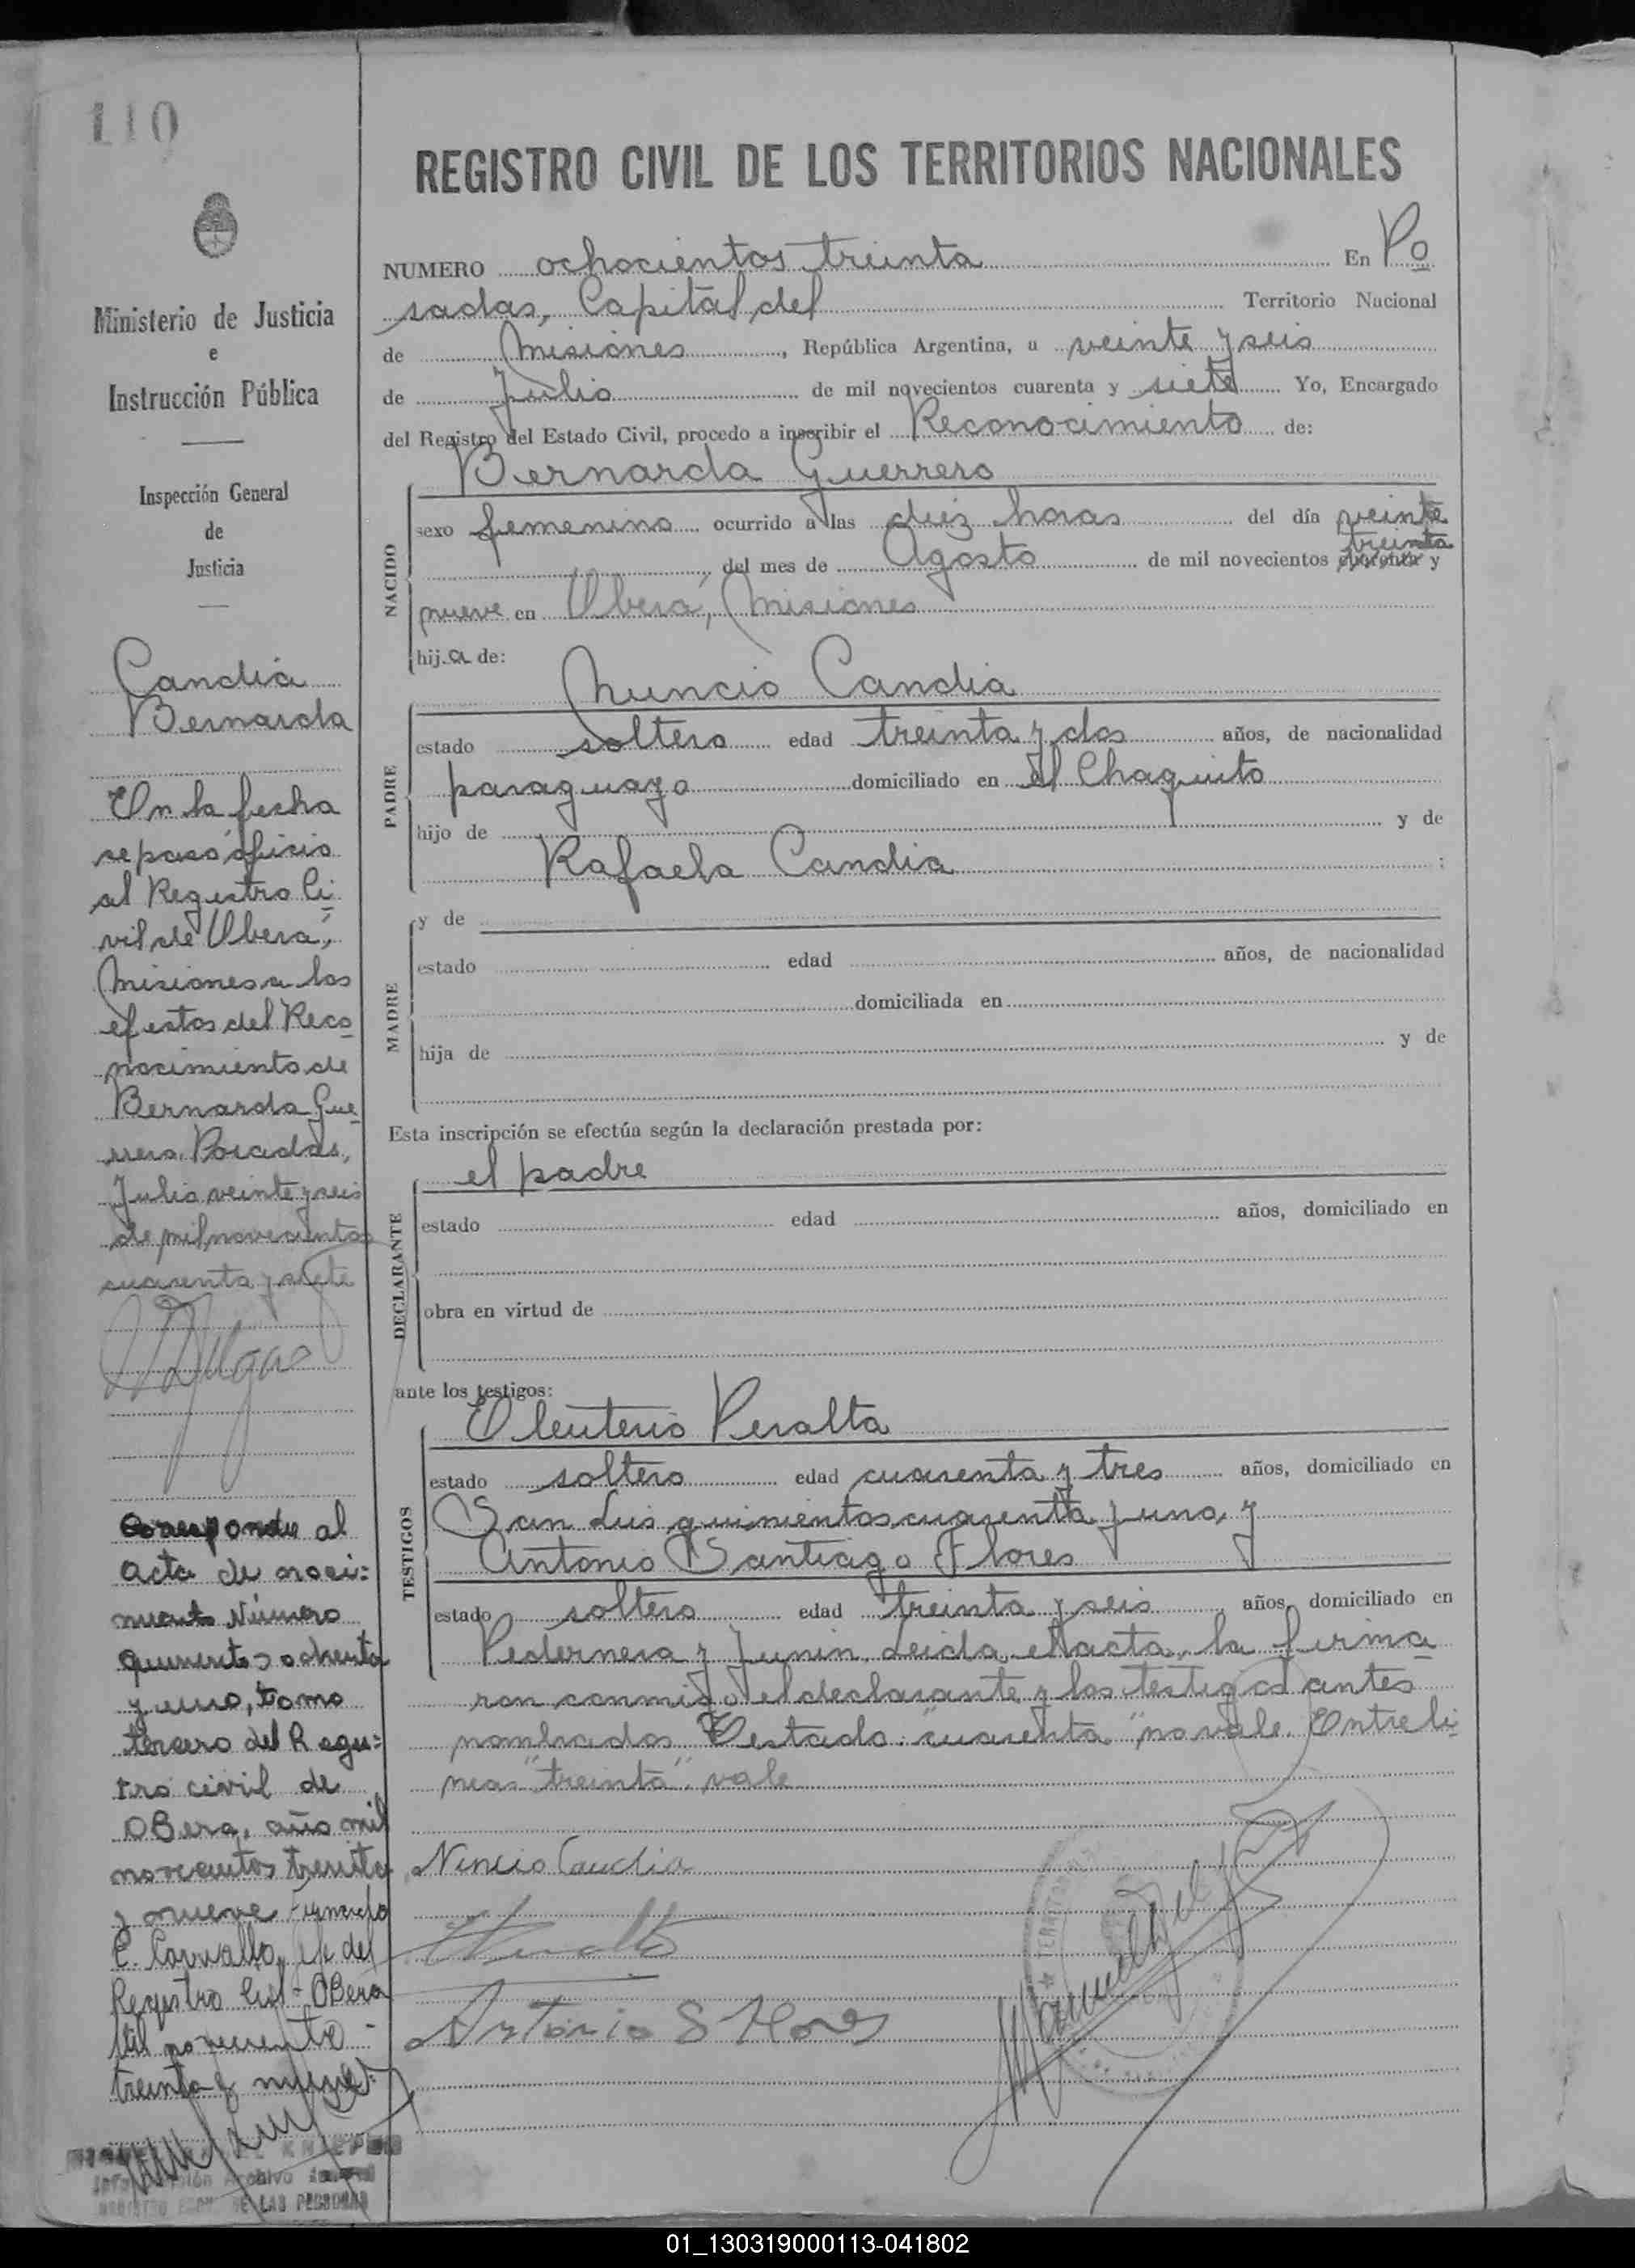 110
Ministerio de Justicia
e
Instrucción Pública
Inspección General
de
Justicia
Candia
Bernarda
En la fecha
se pasó oficio
al Registro Ci
vil de Oberá,
Misiones a los
efectos del Reco
nocimiento de
Bernarda Gue
rrero. Posadas,
Julio veinte y seis
de mil novecientos
cuarenta y siete
Corresponde al
acta de naci=
miento Número
quinientos ochenta
y uno, tomo
tercero del Regis=
tro civil de
OBera, año mil
novecientos treinta
y nueve Fernando
C. Carvallo, Jefe del
Registro Civil - OBera
Mil novecientos
treinta y nueve.
REGISTRO CIVIL DE LOS TERRITORIOS NACIONALES
NUMERO ochocientos treinta En Po
sadas, Capital del Territorio Nacional
de Misiones, República Argentina, a veinte y seis
de Julio de mil novecientos cuarenta y siete Yo, Encargado
del Registro del Estado Civil, procedo a inscribir el Reconocimiento de:
Bernarda Guerrero
NACIDO
sexo femenino ocurrido a las diez horas del día veinte
treinta
del mes de Agosto de mil novecientos cuarenta y
nueve en Oberá, Misiones
hija de:
Nuncio Candia
PADRE
estado soltero edad treinta y dos años, de nacionalidad
paraguayo domiciliado en el Chaquito
hijo de y de
Rafaela Candia ;
MADRE
y de
estado edad años, de nacionalidad
domiciliada en
hija de y de
Esta inscripción se efectúa según la declaración prestada por:
el padre
DECLARANTE
estado edad años, domiciliado en
obra en virtud de
ante los testigos:
Eleuterio Peralta
TESTIGOS
estado soltero edad cuarenta y tres años, domiciliado en
San Luis quinientos cuarenta y uno, y
Antonio Santiago Flores
estado soltero edad treinta y seis años, domiciliado en
Pedernera y Junin. Leida el acta, la firma
ron conmigo el declarante y los testigos antes
nombrados Testado: "cuarenta" no vale. Entre li
neas "treinta": vale
Nuncio Candia
Antonio S Flores
DE LAS PERSONAS
01_130319000113-041802